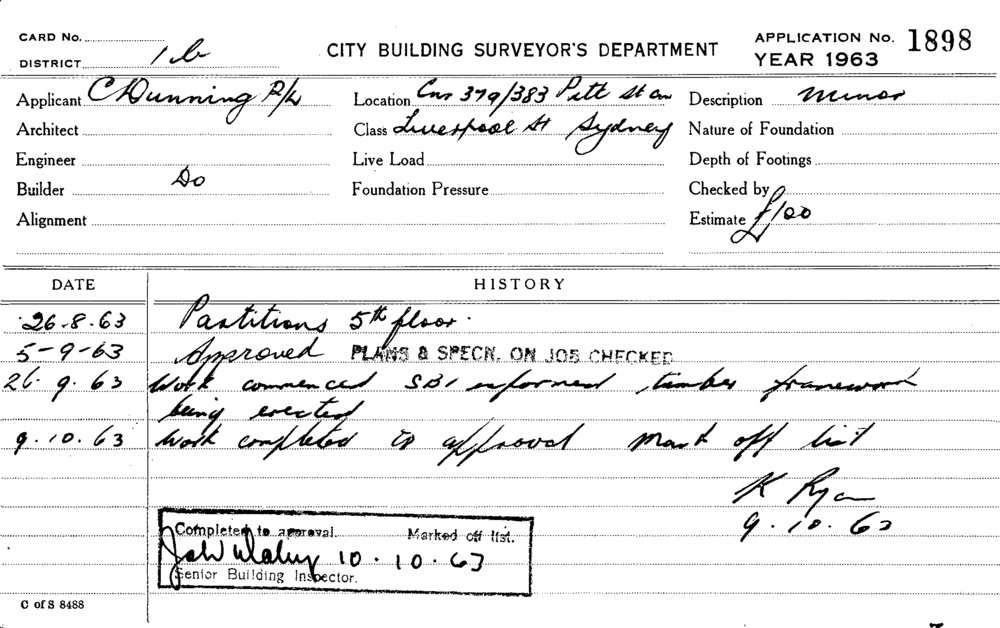 CARD No.
DISTRICT 1 b
CITY BUILDING SURVEYOR'S DEPARTMENT
APPLICATION No. 1898
YEAR 1963
Applicant C Dunning P/L
Location Cnr 379/383 Pitt St on
Description Minor
Architect
Class Liverpool St Sydney
Nature of Foundation
Engineer
Live Load
Depth of Footings
Builder Do
Foundation Pressure
Checked by
Alignment
Estimate £100
DATE HISTORY
26.8.63 Partitions 5th floor.
5-9-63 Approved PLANS & SPECN. ON JOB CHECKED
26.9.63 Work commenced SBI informed timber framework
being erected
9.10.63 Work completed to approval Mark off list
K Ryan
9.10.63
Completed to approval. Marked off list.
10.10.63
Senior Building Inspector.
C of S 8488